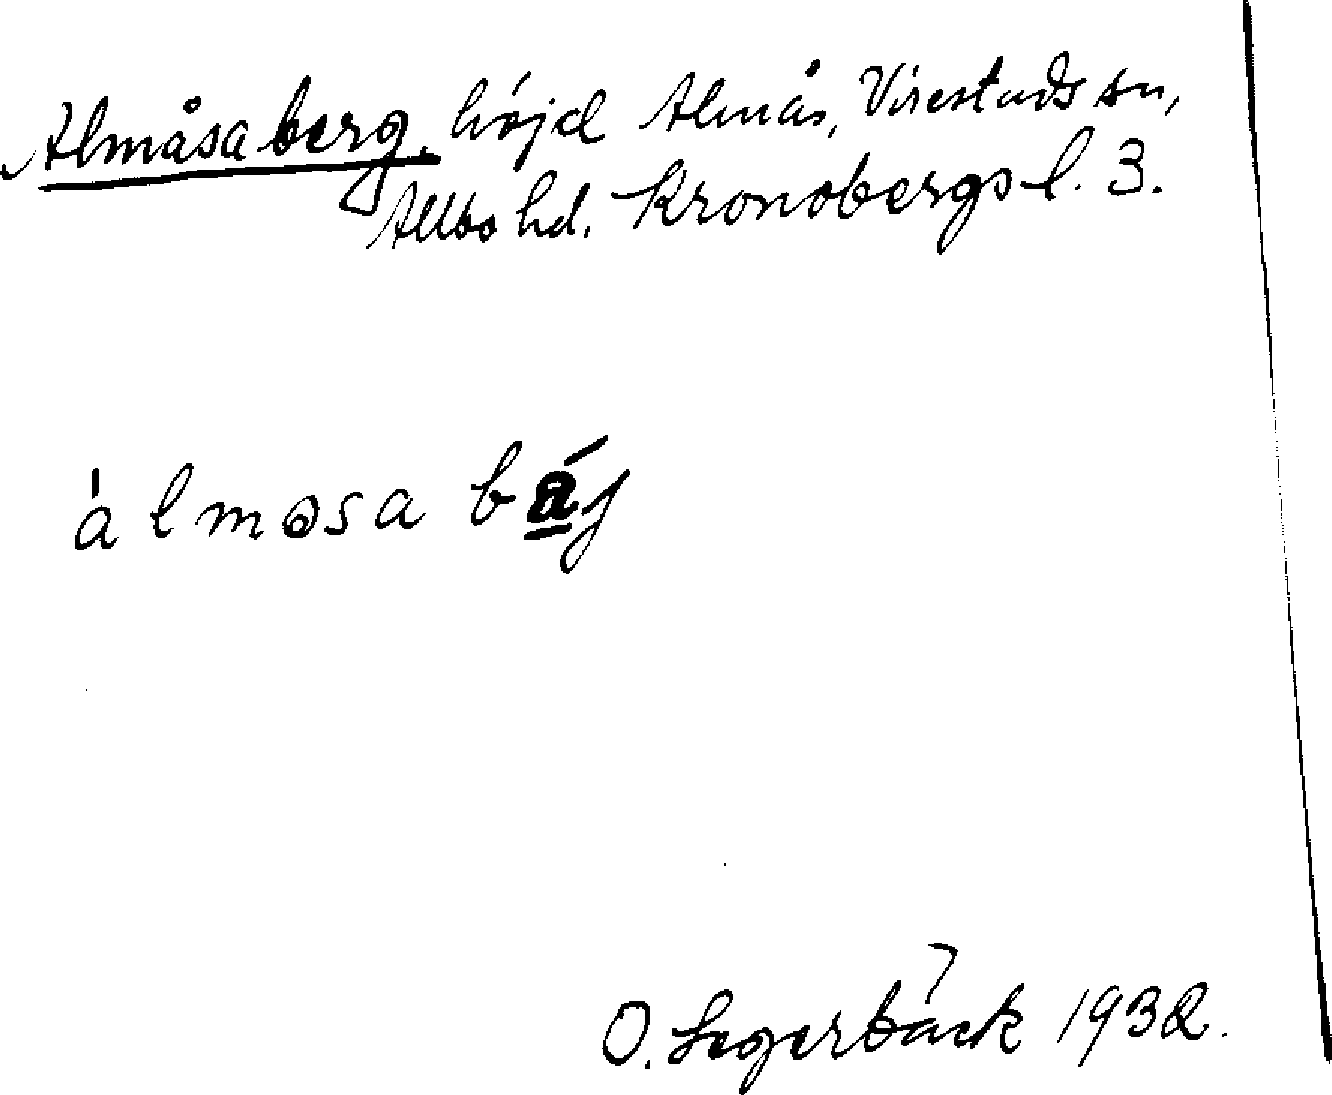 Almåsaberg, höjd Almås, Virestads sn,
Allbo hd. Kronobergs l. 3.
àlmosa báj
O. Segerbäck 1932.